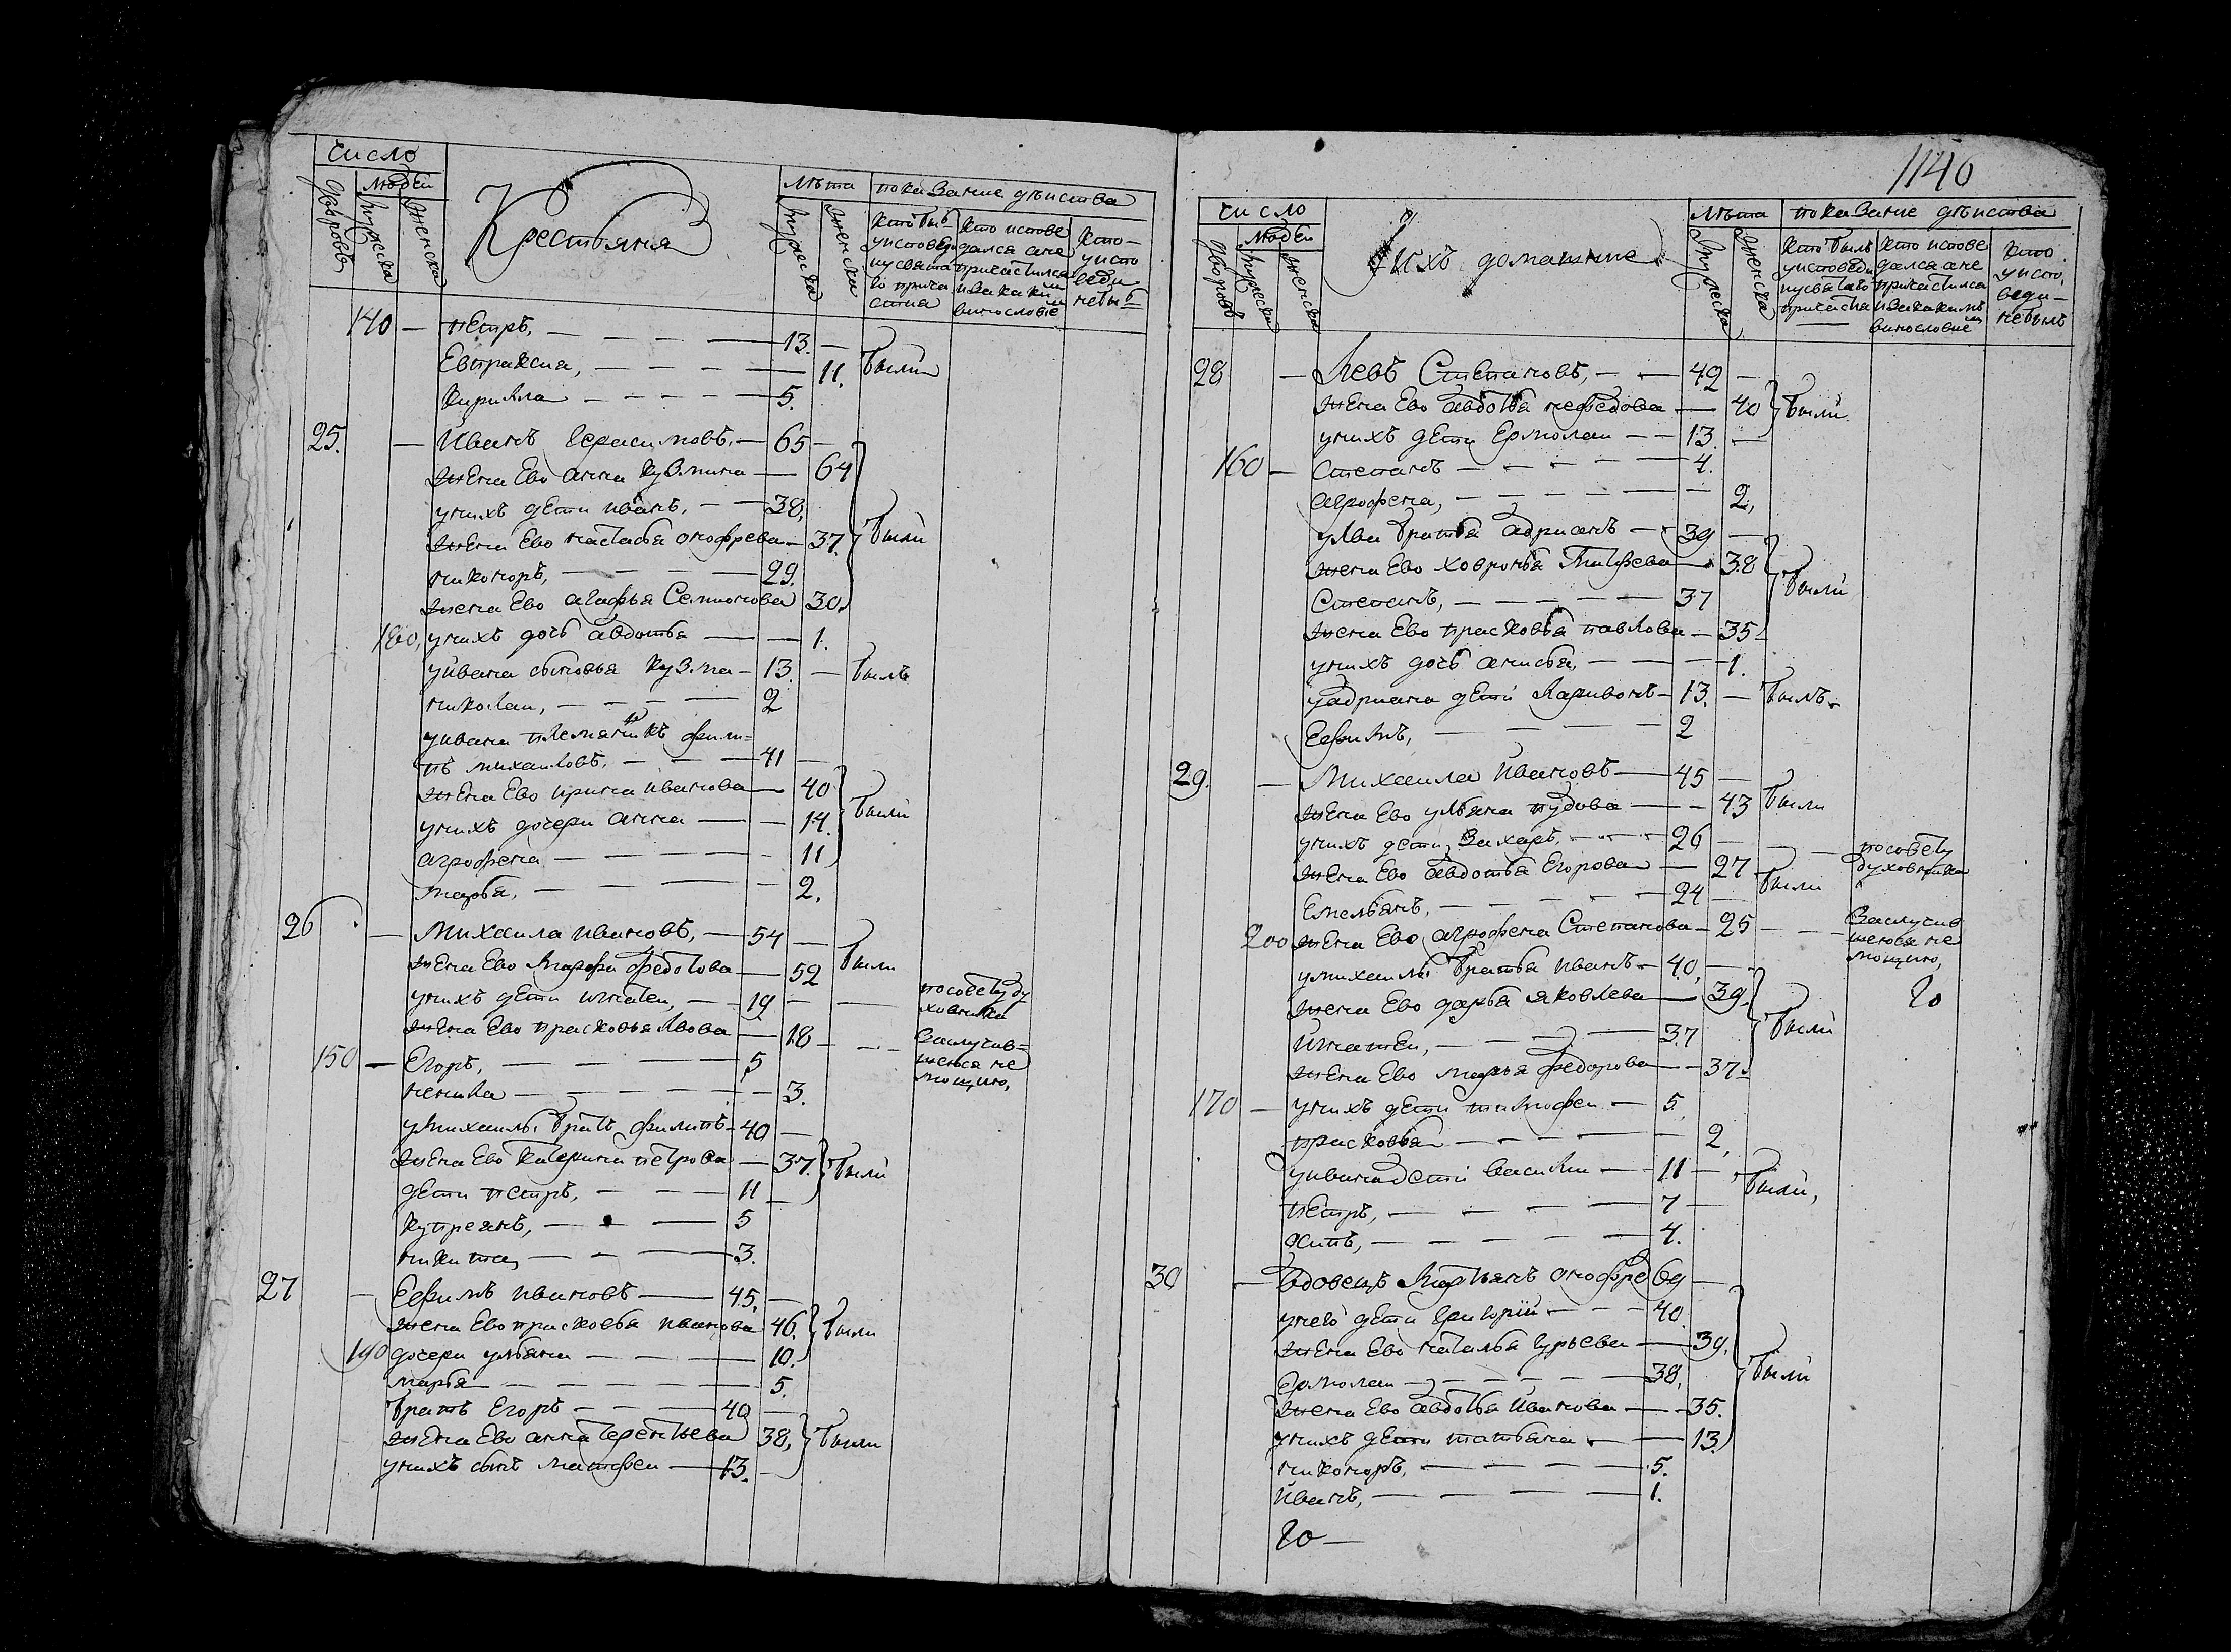 число
людей
дворовъ
мужеска
женска
Крестьяня
лѣта
мужеска
женска
показание дѣиства
кто былъ
у исповеди
и у свята
го прича
стия
кто испове
дался а не
причастился
и за каким
винословіе
кто
у испо
веди
не былъ
140 — петръ, — 13. —
Евпраксия, — 11. были
Кирилла — 5.
25. — Иванъ Герасимовъ, — 65 —
жена Ево анна кузмина — 64
у нихъ дети иванъ, — 38,
жена Ево настасья онофрева — 37. были
никоноръ, — 29.
жена Ево агафья Семионова 30.
180, у нихъ дочь авдотья — 1.
у ивана сыновья кузма — 13. — былъ
николаи, — 2
у ивана племянникъ фили=
пъ михаиловъ, — 41 —
жена Ево ирина иванова — 40
у нихъ дочери анна — 14. были
агрофена — 11
марья, — 2.
26 — Михаила ивановъ, — 54 —
жена Ево Марфа федотова — 52 были
у нихъ дети игнатеи, — 19 — по совету ду
ховника
жена Ево прасковья Лвова — 18 — за случив=
шеюся не
мощию,
150 — Егоръ, — 5
ненила — 3.
у михаилы братъ филипъ — 40 —
жена Ево катерина петрова — 37. были
дети петръ, — 11 —
купреянъ, — 5
никита, — 3.
27 — Ефимъ ивановъ — 45, —
жена Ево прасковья иванова 46. были
190 дочери ульяна — 10.
марья — 5.
братъ Егоръ — 40 —
жена Ево анна терентьева 38, были
у нихъ сынъ матфеи — 13. —
1140
число
людей
дворовъ
мужеска
женска
И ихъ домашние
лѣта
мужеска
женска
показание дѣиства
кто былъ
у исповеди
и у святаго
причастия
кто испове
дался а не
причастился
и за какимъ
винословие
кто
у испо,
веди —
не былъ
28 — Левъ Степановъ, — 42 —
жена Ево авдотья нефедова — 40 были
у нихъ дети Ермолаи — 13. —
160 — степанъ — 4.
агрофена, — 2,
у Лва братья адрианъ — 39 —
жена Ево ховронья Матфева — 38
Степанъ, — 37 были
жена Ево прасковья павлова — 35
у нихъ дочь анисья, — 1.
у адриана дети Ларивонъ — 13. — былъ
Ефимъ, — 2
29. — Михаила ивановъ — 45 —
жена Ево ульяна пудова — 43 были
у нихъ дети, Захаръ, — 26 — по совету
жена Ево авдотья Егорова — 27 духовника
Емельянъ, — 24 были
200 жена Ево агрофена Степанова — 25 — за случив
шеюся не
мощию,
у михаилы братья иванъ — 40, —
жена Ево дарья яковлева — 39
Игнатеи, — 37 были
жена Ево марья федорова — 37
170 — у нихъ дети тимофеи — 5,
прасковья — 2,
у ивана дети василии — 11 —
петръ, — 7 — были,
осипъ, — 4.
30 — вдовецъ Мартьянъ онофре 69 —
у него дети григории — 40
жена Ево наталья гурьева — 39,
Ермолаи — 38, были
жена Ево авдотья иванова — 35.
у нихъ дети татьяна — 13
никоноръ, — 5.
иванъ, — 1.